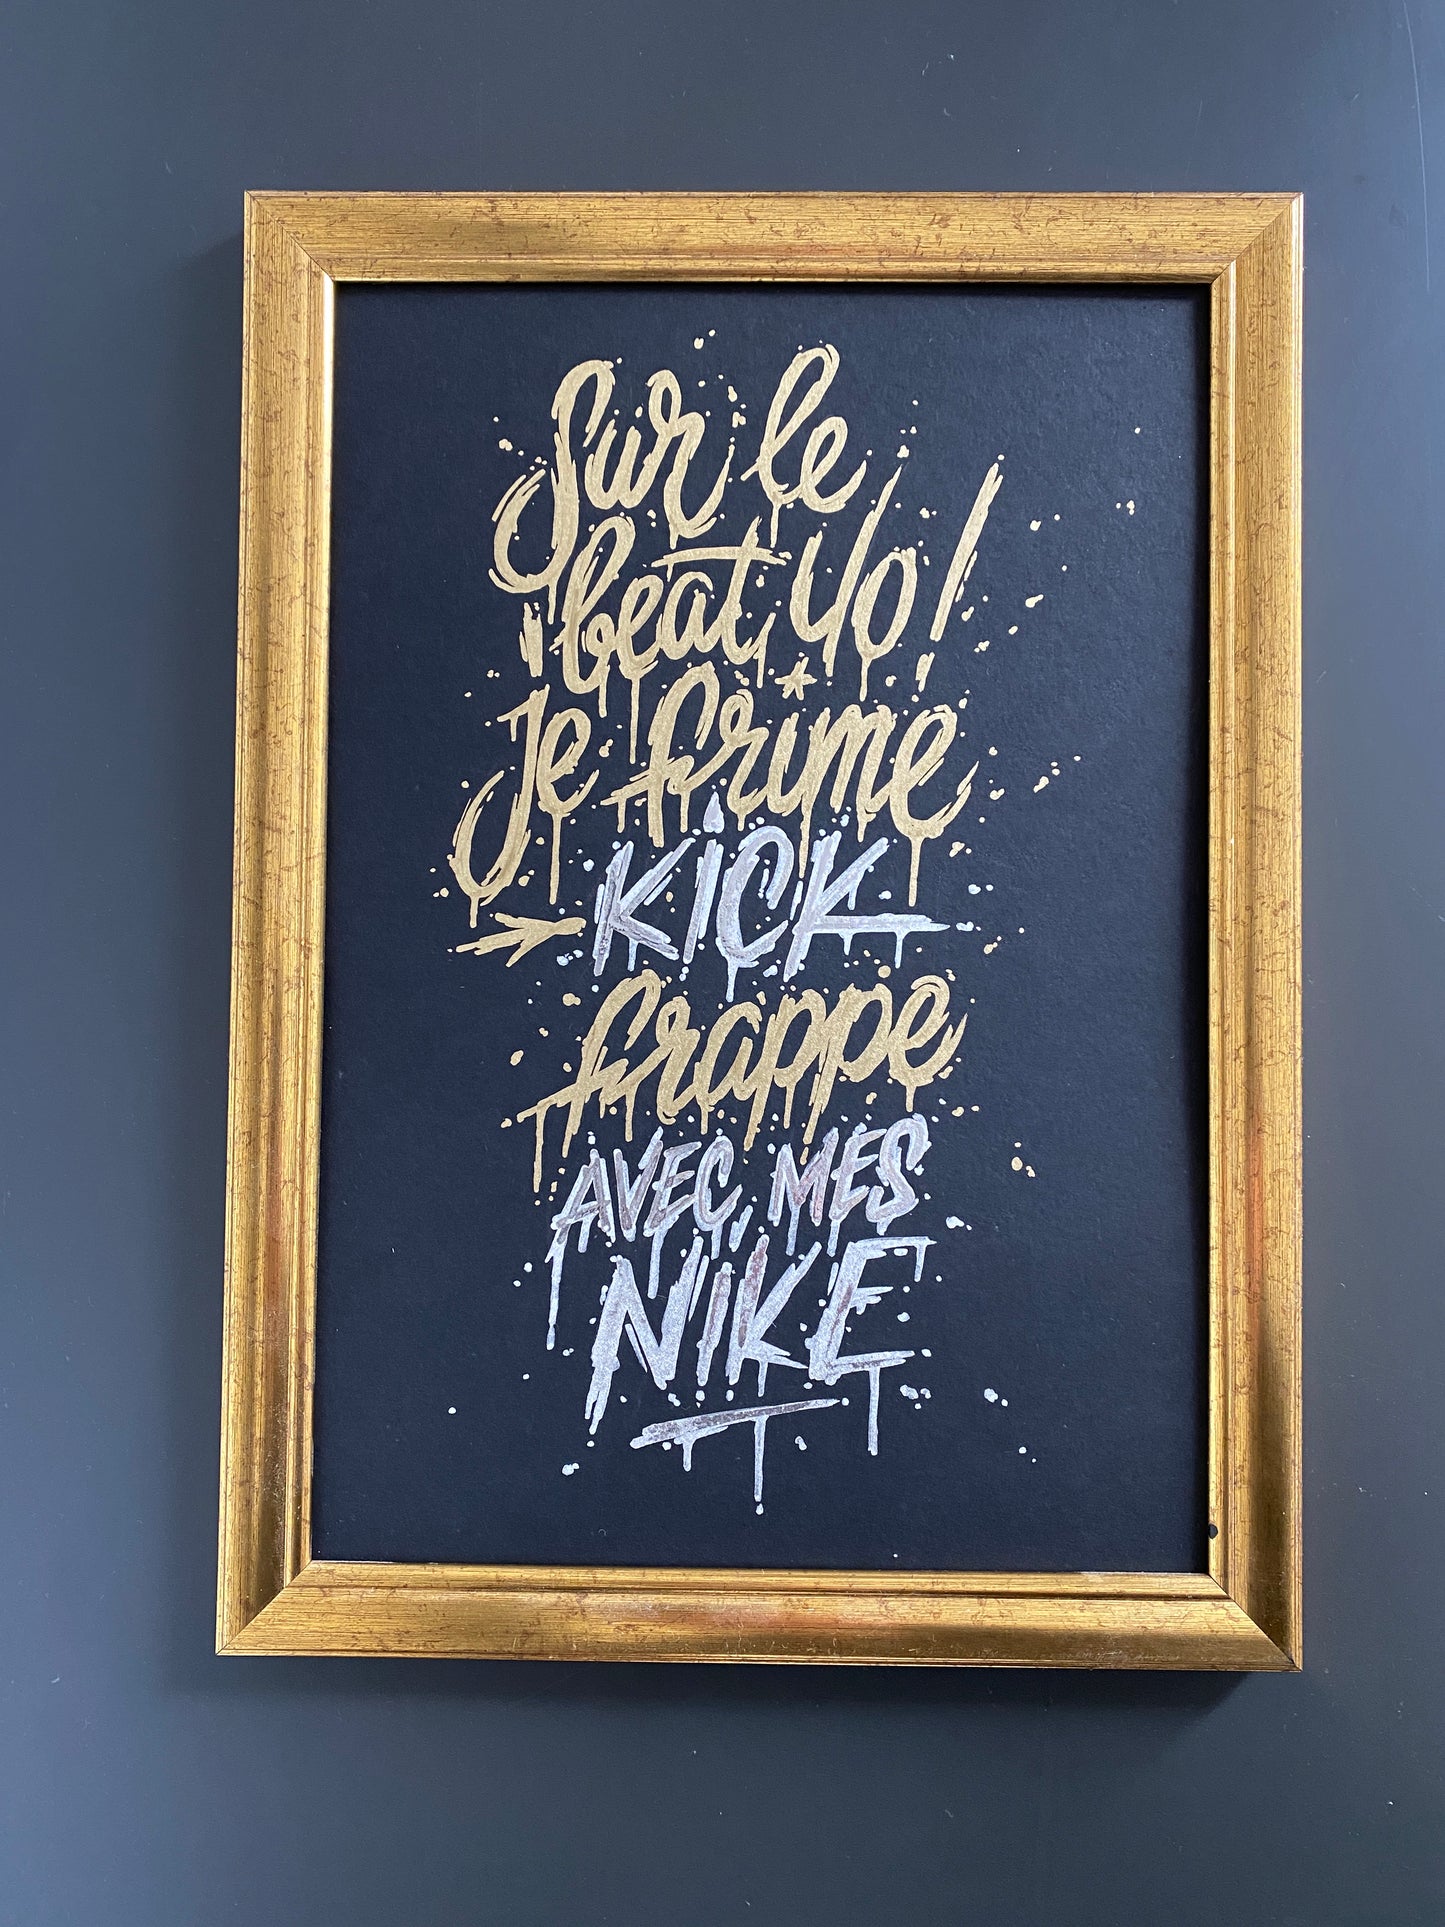 Sur le
beat, yo!
Je frime
KICK
frappe
AVEC MES
NIKE